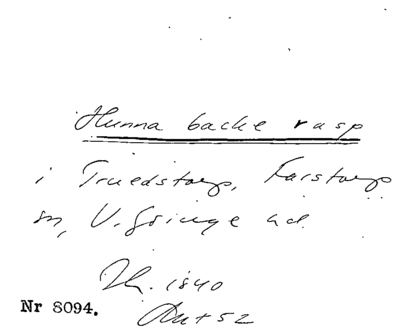 Hunna backe rasp
i Truedstorp, Farstorps
sn, V. Göinge hd.
Th. 1840
Nr 8094.